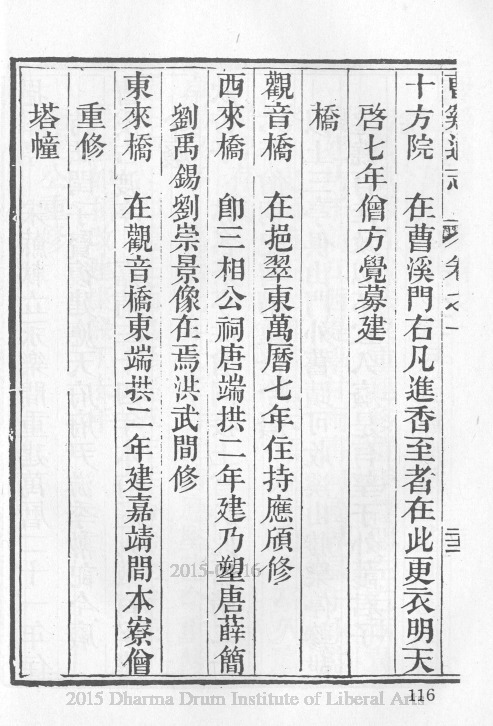 十方院　在曹溪門右凡進香至者在此更衣明天
啓七年僧方覺募建
橋
觀音橋　在挹翠東萬曆七年住持應頎修
西來橋　卽三相公祠唐端拱二年建乃塑唐薛簡
劉禹錫劉崇景像在焉洪武間修
東來橋　在觀音橋東端拱二年建嘉靖間本寮僧
重修
塔幢
116
2015 Dharma Drum Institute of Liberal Arts